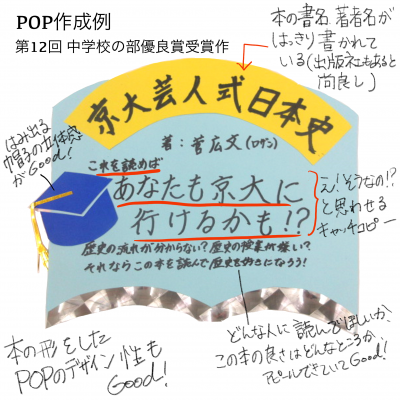 POP作成例
第12回 中学校の部優良賞受賞作
本の書名、著者名が
はっきり書かれて
いる(出版社もあると
尚良し)
京大芸人式日本史
著:菅広文(ロザン)
はみ出る
帽子の立体感
がGood!
これを読めば
あなたも京大に
行けるかも!?
え!そうなの!?
と思わせる
キャッチコピー
歴史の流れが分からない?歴史の授業が嫌い?
それならこの本を読んで歴史を好きになろう!
本の形をした
POPのデザイン性も
Good!
どんな人に読んでほしいか、
この本の良さはどんなところか、
アピールできていてGood!